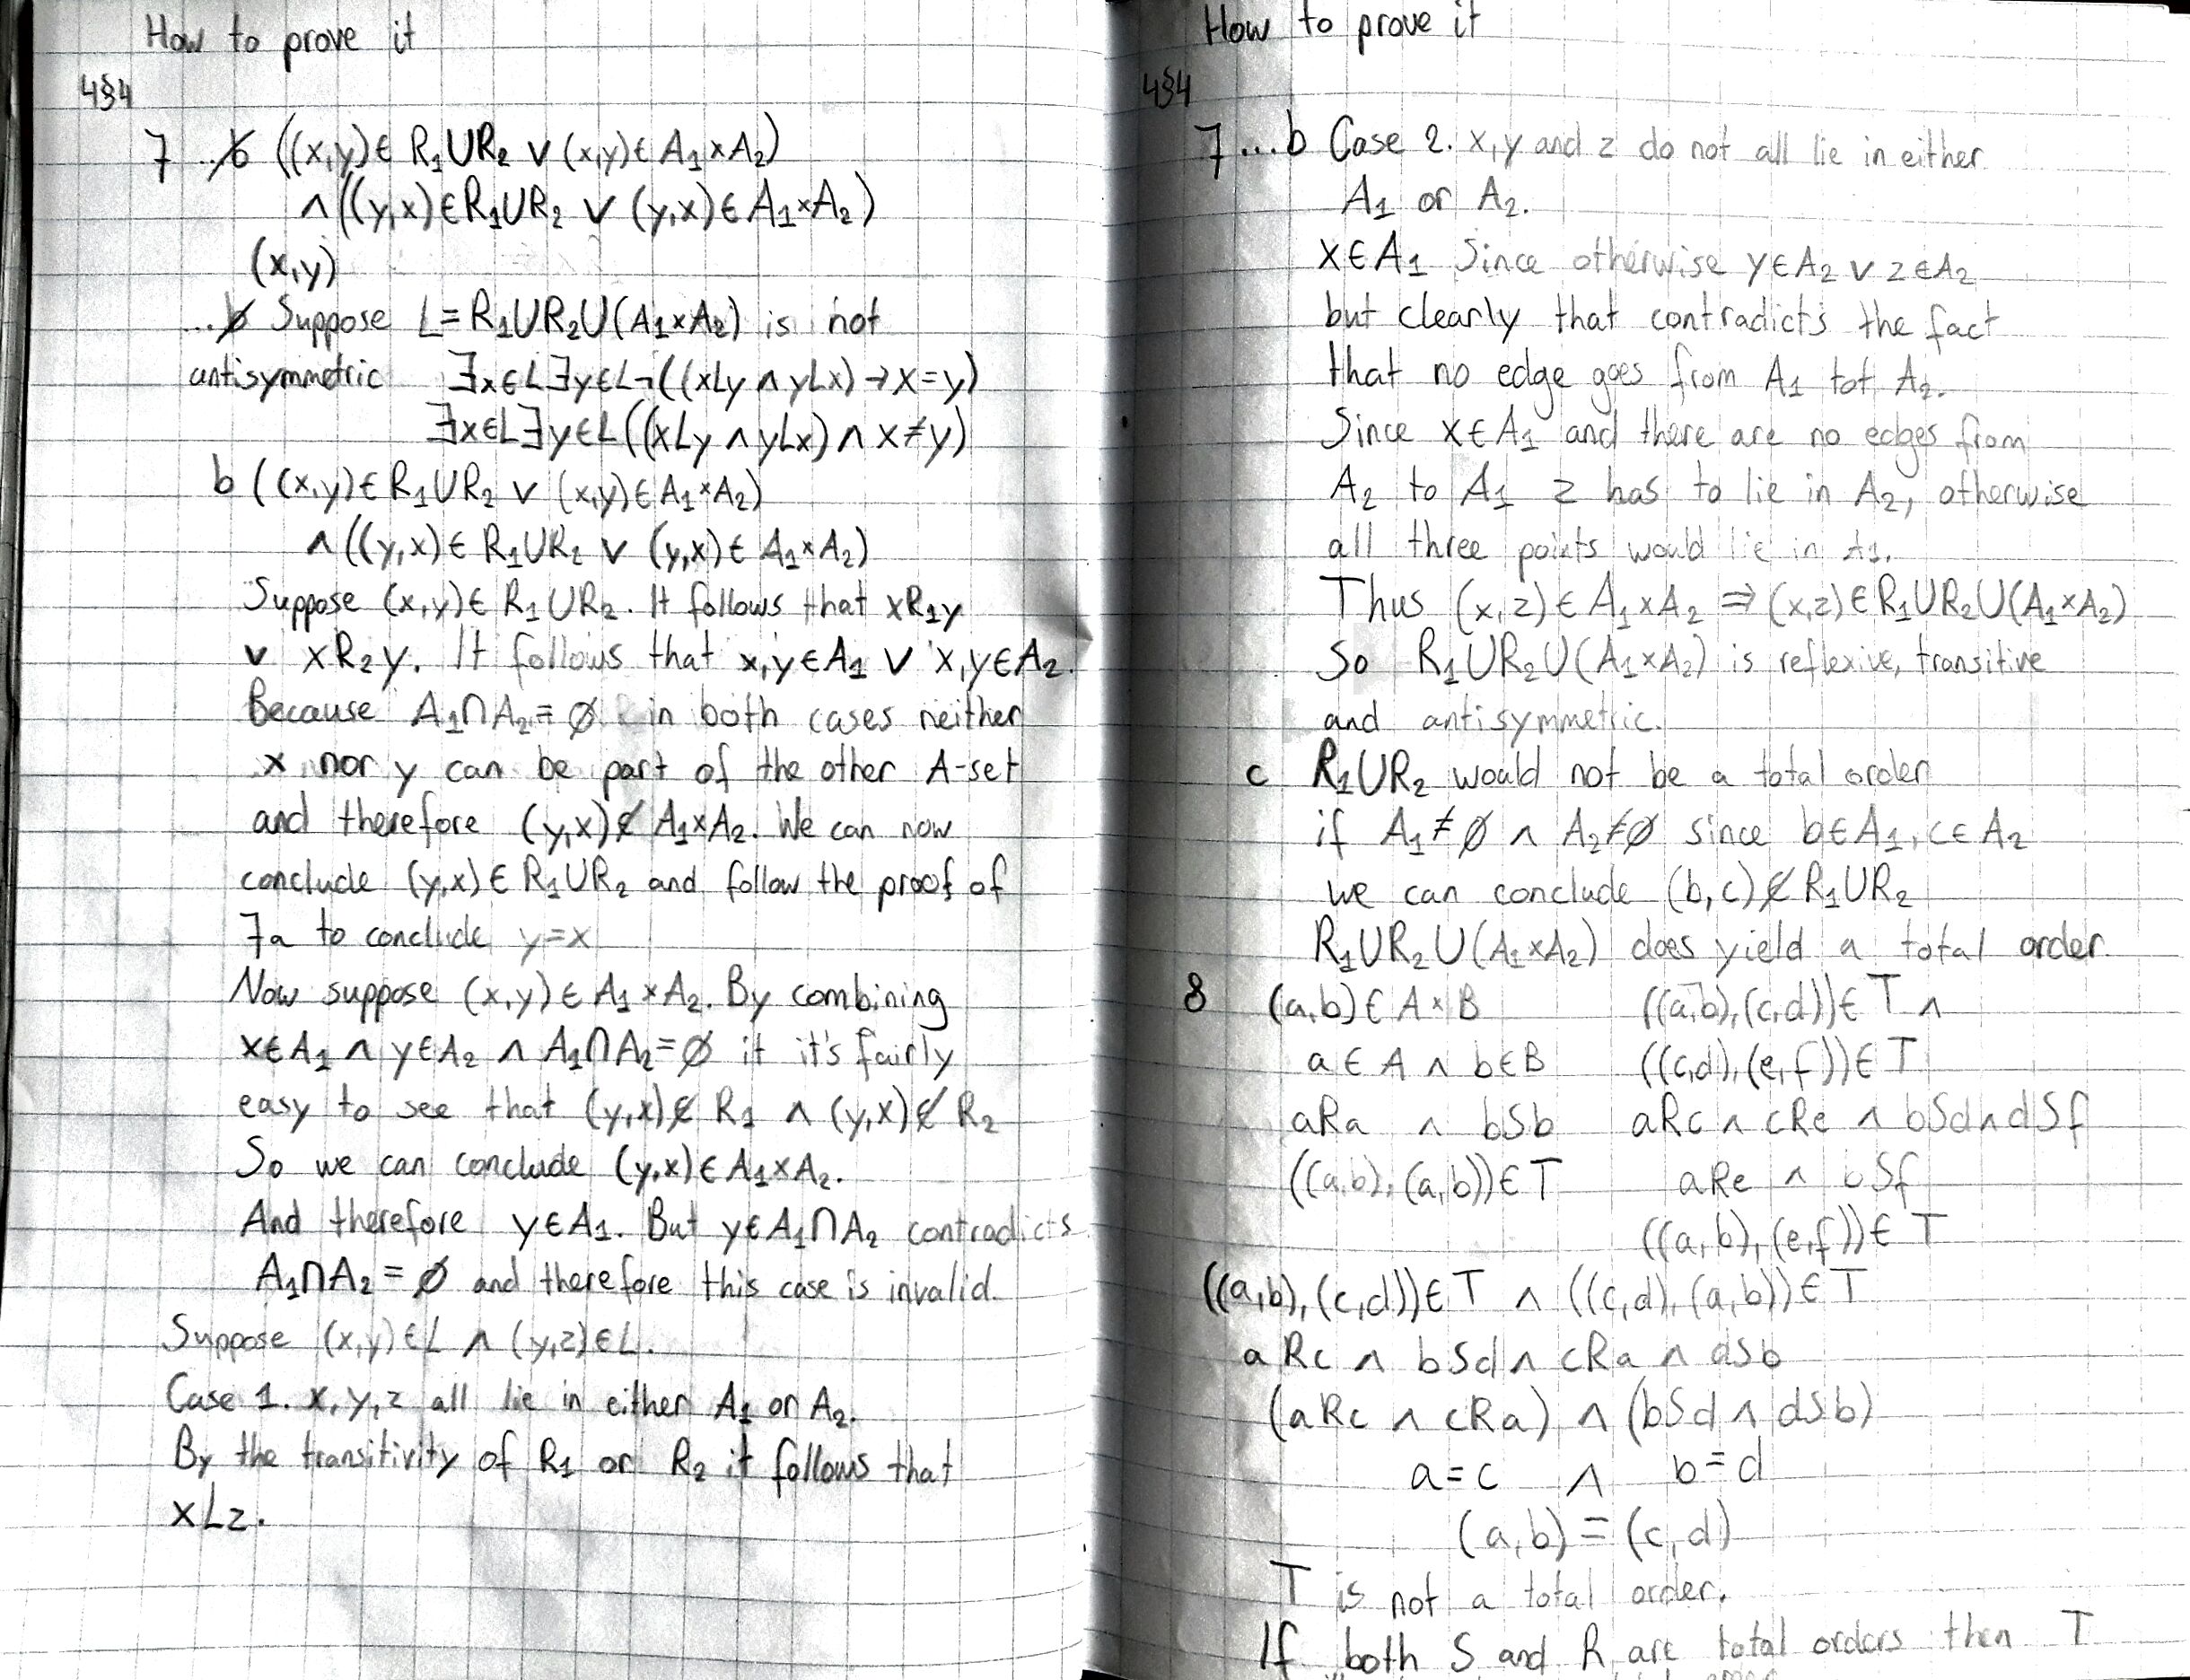 How to prove it
4§4
7 ...b ((x,y)∈ R₁∪R₂ ∨ (x,y)∈ A₁×A₂)
∧((y,x)∈R₁∪R₂ ∨ (y,x)∈ A₁×A₂)
(x,y)
...b Suppose L=R₁∪R₂∪(A₁×A₂) is not
antisymmetric ∃x∈L∃y∈L¬((xLy ∧ yLx)→x=y)
∃x∈L∃y∈L((xLy ∧ yLx) ∧ x≠y)
b ((x,y)∈R₁∪R₂ ∨ (x,y)∈A₁×A₂)
∧((y,x)∈ R₁∪R₂ ∨ (y,x)∈ A₁×A₂)
Suppose (x,y)∈ R₁∪R₂. It follows that xR₁y
∨ xR₂y. It follows that x,y∈A₁ ∨ x,y∈A₂.
Because A₁∩A₂=∅ in both cases neither
x nor y can be part of the other A-set
and therefore (y,x)∉ A₁×A₂. We can now
conclude (y,x)∈ R₁∪R₂ and follow the proof of
7a to conclude y=x
Now suppose (x,y)∈ A₁×A₂. By combining
x∈A₁ ∧ y∈A₂ ∧ A₁∩A₂=∅ it it's fairly
easy to see that (y,x)∉ R₁ ∧ (y,x)∉ R₂
So we can conclude (y,x)∈A₁×A₂.
And therefore y∈A₁. But y∈A₁∩A₂ contradicts
A₁∩A₂=∅ and therefore this case is invalid.
Suppose (x,y)∈L ∧ (y,z)∈L.
Case 1. x,y,z all lie in either A₁ or A₂.
By the transitivity of R₁ or R₂ it follows that
xLz.
How to prove it
4§4
7...b Case 2. x,y and z do not all lie in either
A₁ or A₂.
x∈A₁ Since otherwise y∈A₂ ∨ z∈A₂
but clearly that contradicts the fact
that no edge goes from A₁ tot A₂.
Since x∈A₁ and there are no edges from
A₂ to A₁ z has to lie in A₂, otherwise
all three points would lie in A₁.
Thus (x,z)∈A₁×A₂ ⇒ (x,z)∈R₁∪R₂∪(A₁×A₂)
So R₁∪R₂∪(A₁×A₂) is reflexive, transitive
and antisymmetric.
c R₁∪R₂ would not be a total order
if A₁≠∅ ∧ A₂≠∅ since b∈A₁, c∈A₂
we can conclude (b,c)∉R₁∪R₂
R₁∪R₂∪(A₁×A₂) does yield a total order.
8 (a,b)∈A×B ((a,b),(c,d))∈T ∧
a∈A ∧ b∈B ((c,d),(e,f))∈T
aRa ∧ bSb aRc ∧ cRe ∧ bSd∧dSf
((a,b),(a,b))∈T aRe ∧ bSf
((a,b),(e,f))∈T
((a,b),(c,d))∈T ∧ ((c,d),(a,b))∈T
aRc ∧ bSd ∧ cRa ∧ dSb
(aRc ∧ cRa) ∧ (bSd ∧ dSb)
a=c ∧ b=d
(a,b)=(c,d)
T is not a total order.
If both S and R are total orders then T